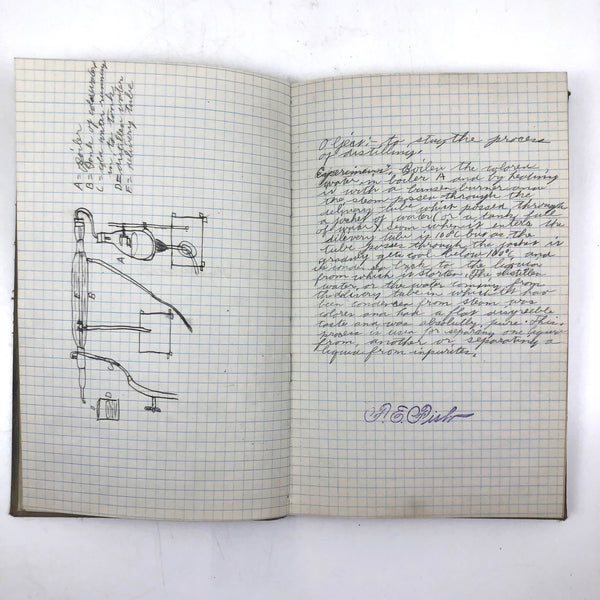 A = Boiler
B = Tank of cold water
C = cold water running
in to tank
D = distilled water
E = delivery tube
A
E
B
C
D
Object:- to stuy the process
of distilling.
Experiment: Boiled the colored
water in boiler A and by heating
is with a bunsen burner and
the steam passed through the
delivery tube which passed through
a jacket of water (or a tank full
of water) Seam when it enters the
delivery tube is 100°C but as the
tube passes through the jacket is
gradualy gets cool below 100° and
is conden back to the liquid
from which is started. The distilled
water, or the water coming from
the delivery tube in which it had
been condenced from steam was
colores and had a flat disagreeble
taste and was absolutly pure. This
process is used for separing one liquid
from another or separating a
liquid from impurites.